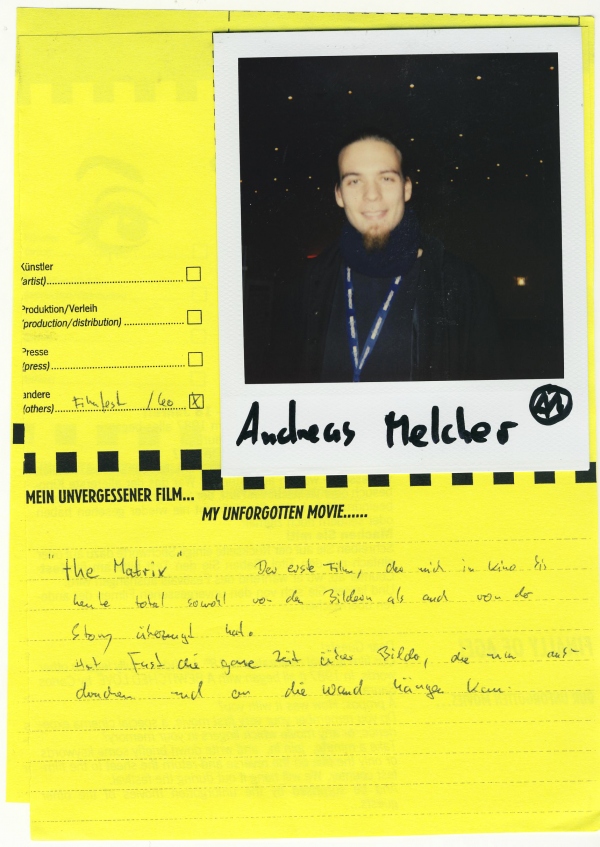 Künstler
(artist)
Produktion/Verleih
(production/distribution)
Presse
(press)
andere Filmfest /Leo X
(others)
Andreas Melcher AM
MEIN UNVERGESSENER FILM...
MY UNFORGOTTEN MOVIE......
"the Matrix" Der erste Film, der mich im Kino bis
heute total sowohl von den Bildern als auch von der
Story überzeugt hat.
Hat Fast die ganze Zeit über Bilder, die man aus-
drucken und an die Wand hängen kann.